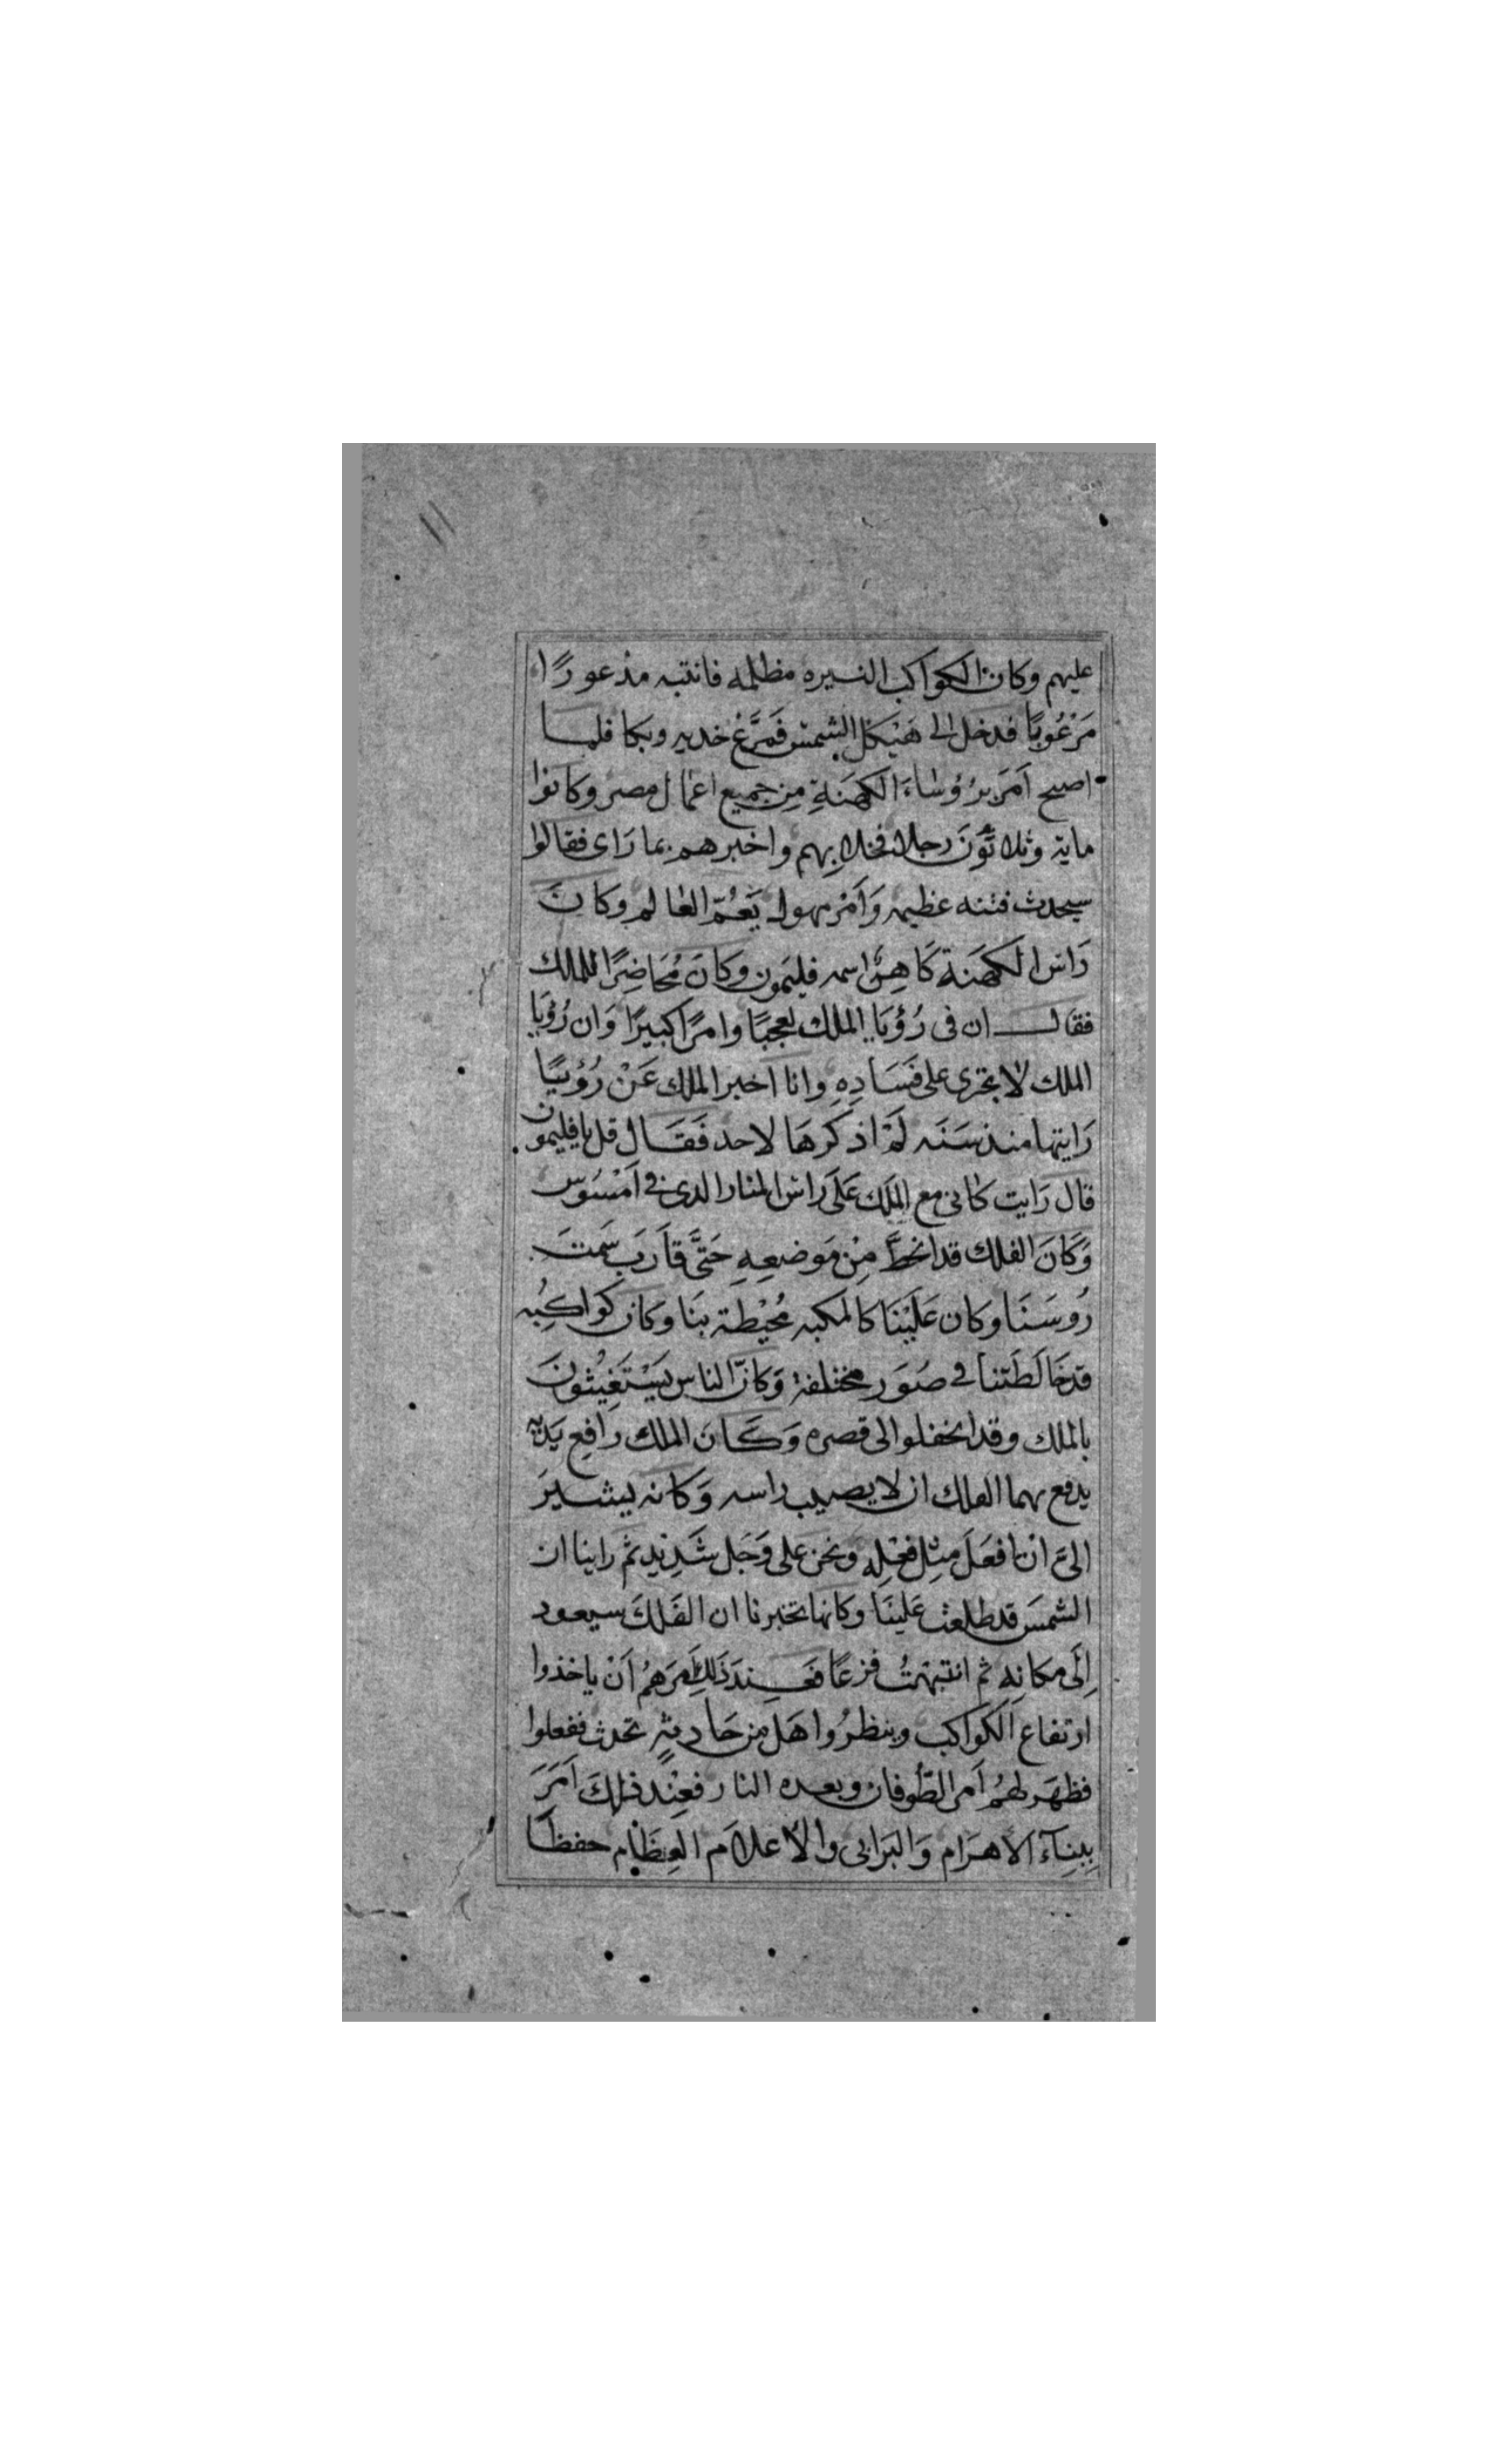 ١١
عليهم وكان الكواكب النسيره مظلمه فانتبه مذعورًا
مَرْعُوبًا فدخل الى هَيْكَلِ الشمْس فَمَرَّغ خديه وبكا فلما
اصبح اَمَر برُؤسَاءَ الكَهَنَةِ مِن جميع اعمال مصر وكانوا
ماية وثلاثُونَ رجلا فخلا بِهم واخبرهم بما رَاى فقالوا
سيحدث فتنه عظيمه وَاَمْر مهول يَعُمّ العالم وكانَ
رَاس الكَهَنة كَاهِنٌ اسمه فليَمون وكَانَ مُحَاضِرًا للملك
فقال ان فى رُؤيَا الملك لعجبًا وامرًا كبيرًا وَان رُؤيَا
الملك لا تجرى على فَسَادِهِ وانا اخبر الملك عَنْ رُؤييًا
رَايتها منذ سَنَه لَمْ اذكرهَا لاحد فَقَال قل يا فليمون
قال رَايت كانى مع الملَك عَلَى رَاس المنار الذى فى اَمْسُوس
وَكَانَ الفلك قد انحَطَّ مِنْ مَوضعِهِ حَتَّى قاَرَبَ سَمتَ
رُوسَنَا وكان عَلَيْنَا كالمكبه مُحيْطة بنَا وكان كواكِبُه
قد خَالَطَتنا فى صُوَر مختلفة وَكانّ الناس يَسْتَغِيثونَ
بالملك وقد انحفلوا الى قصره وَكَانَ الملك رافع يَدَيْه
يدفع بهما الفلك ان لا يصيب راسه وَكانه يشيرَ
الىَّ انْ افعَلَ مِثل فعْلِهِ ونحن على وَجَل شَدِيْدٍ ثم راينا ان
الشمسَ قد طلعت عَلينَا وكانها تخبرنا ان الفَلَكَ سيعود
اِلَى مكانِهِ ثم انتبَهْتُ فزعًا فَعِنْدَ ذَلِكَ اَمَرَهُم اَنْ ياخذوا
ارتفاع الكَوَاكب وينظرُوا هَل مِن حَادِثةٍ تحدث ففعلوا
فظهَرَ لهُم اَمر الطّوفان وبعده النار فعِنْد ذلكَ اَمَرَ
بِبِنآءَ الاهرَام وَالبَرَابى والاعلاَم العِظَام حفظًا